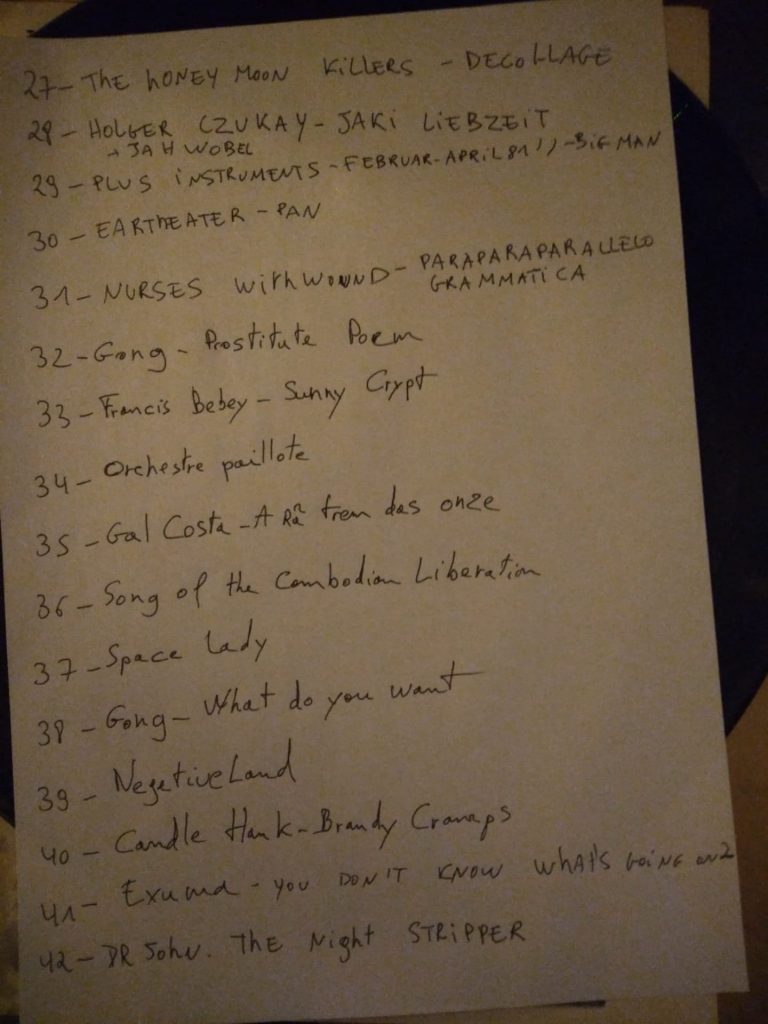 27- THE HONEY MOON KiLLERS - DECOLLAGE
28 - HOLGER CZUKAY - JAKI LiEBZEiT
→ JAH WOBEL
29 - PLUS iNSTRUMENTS - FEBRUAR-APRiL 81'' - BiG MAN
30 - EARTHEATER - PAN
31 - NURSES WithWOUND - PARAPARAPARALLELO
GRAMMATiCA
32 - Gong - Prostitute Poem
33 - Francis Bebey - Sunny Crypt
34 - Orchestre paillote
35 - Gal Costa - A Rã trem das onze
36 - Song of the Cambodian Liberation
37 - Space Lady
38 - Gong - What do you want
39 - NegetiveLand
40 - Candle Hank - Brandy Cramps
41 - Exuma - YOU DON'T KNOW WHAT'S GOiNG ON?
42 - DR JOHN. THE Night STRiPPER